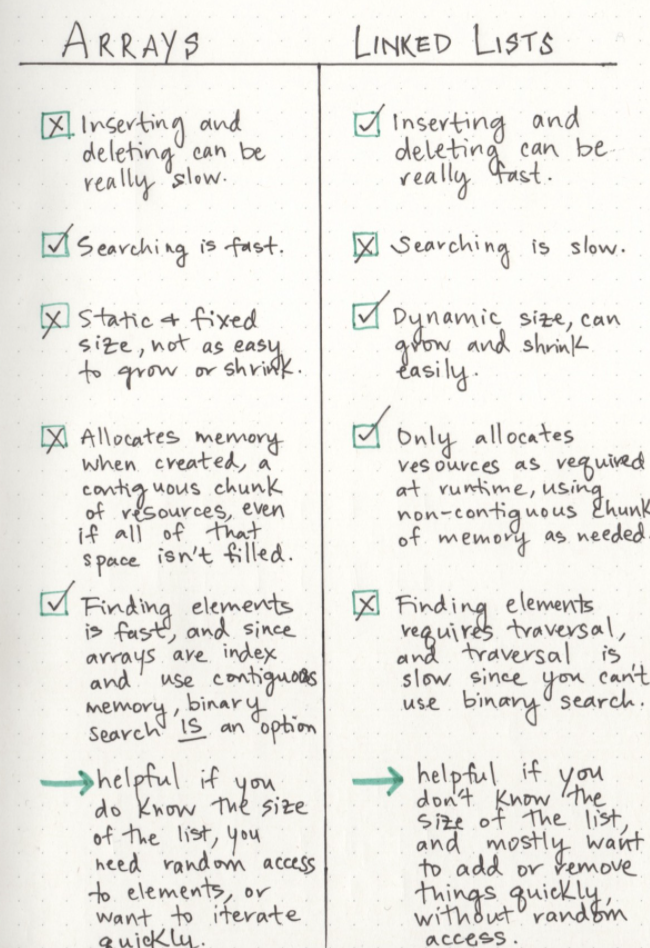 ARRAYS
Inserting and
deleting can be
really slow.
Searching is fast.
Static & fixed
size, not as easy
to grow or shrink.
Allocates memory
when created, a
contiguous chunk
of resources, even
if all of that
space isn't filled.
Finding elements
is fast, and since
arrays are index
and use contiguous
memory, binary
search IS an option
helpful if you
do know the size
of the list, you
need random access
to elements, or
want to iterate
quickly.
LINKED LISTS
Inserting and
deleting can be
really fast.
Searching is slow.
Dynamic size, can
grow and shrink
easily.
Only allocates
resources as required
at runtime, using
non-contiguous chunk
of memory as needed.
Finding elements
requires traversal,
and traversal is
slow since you can't
use binary search.
helpful if you
don't know the
size of the list,
and mostly want
to add or remove
things quickly,
without random
access.